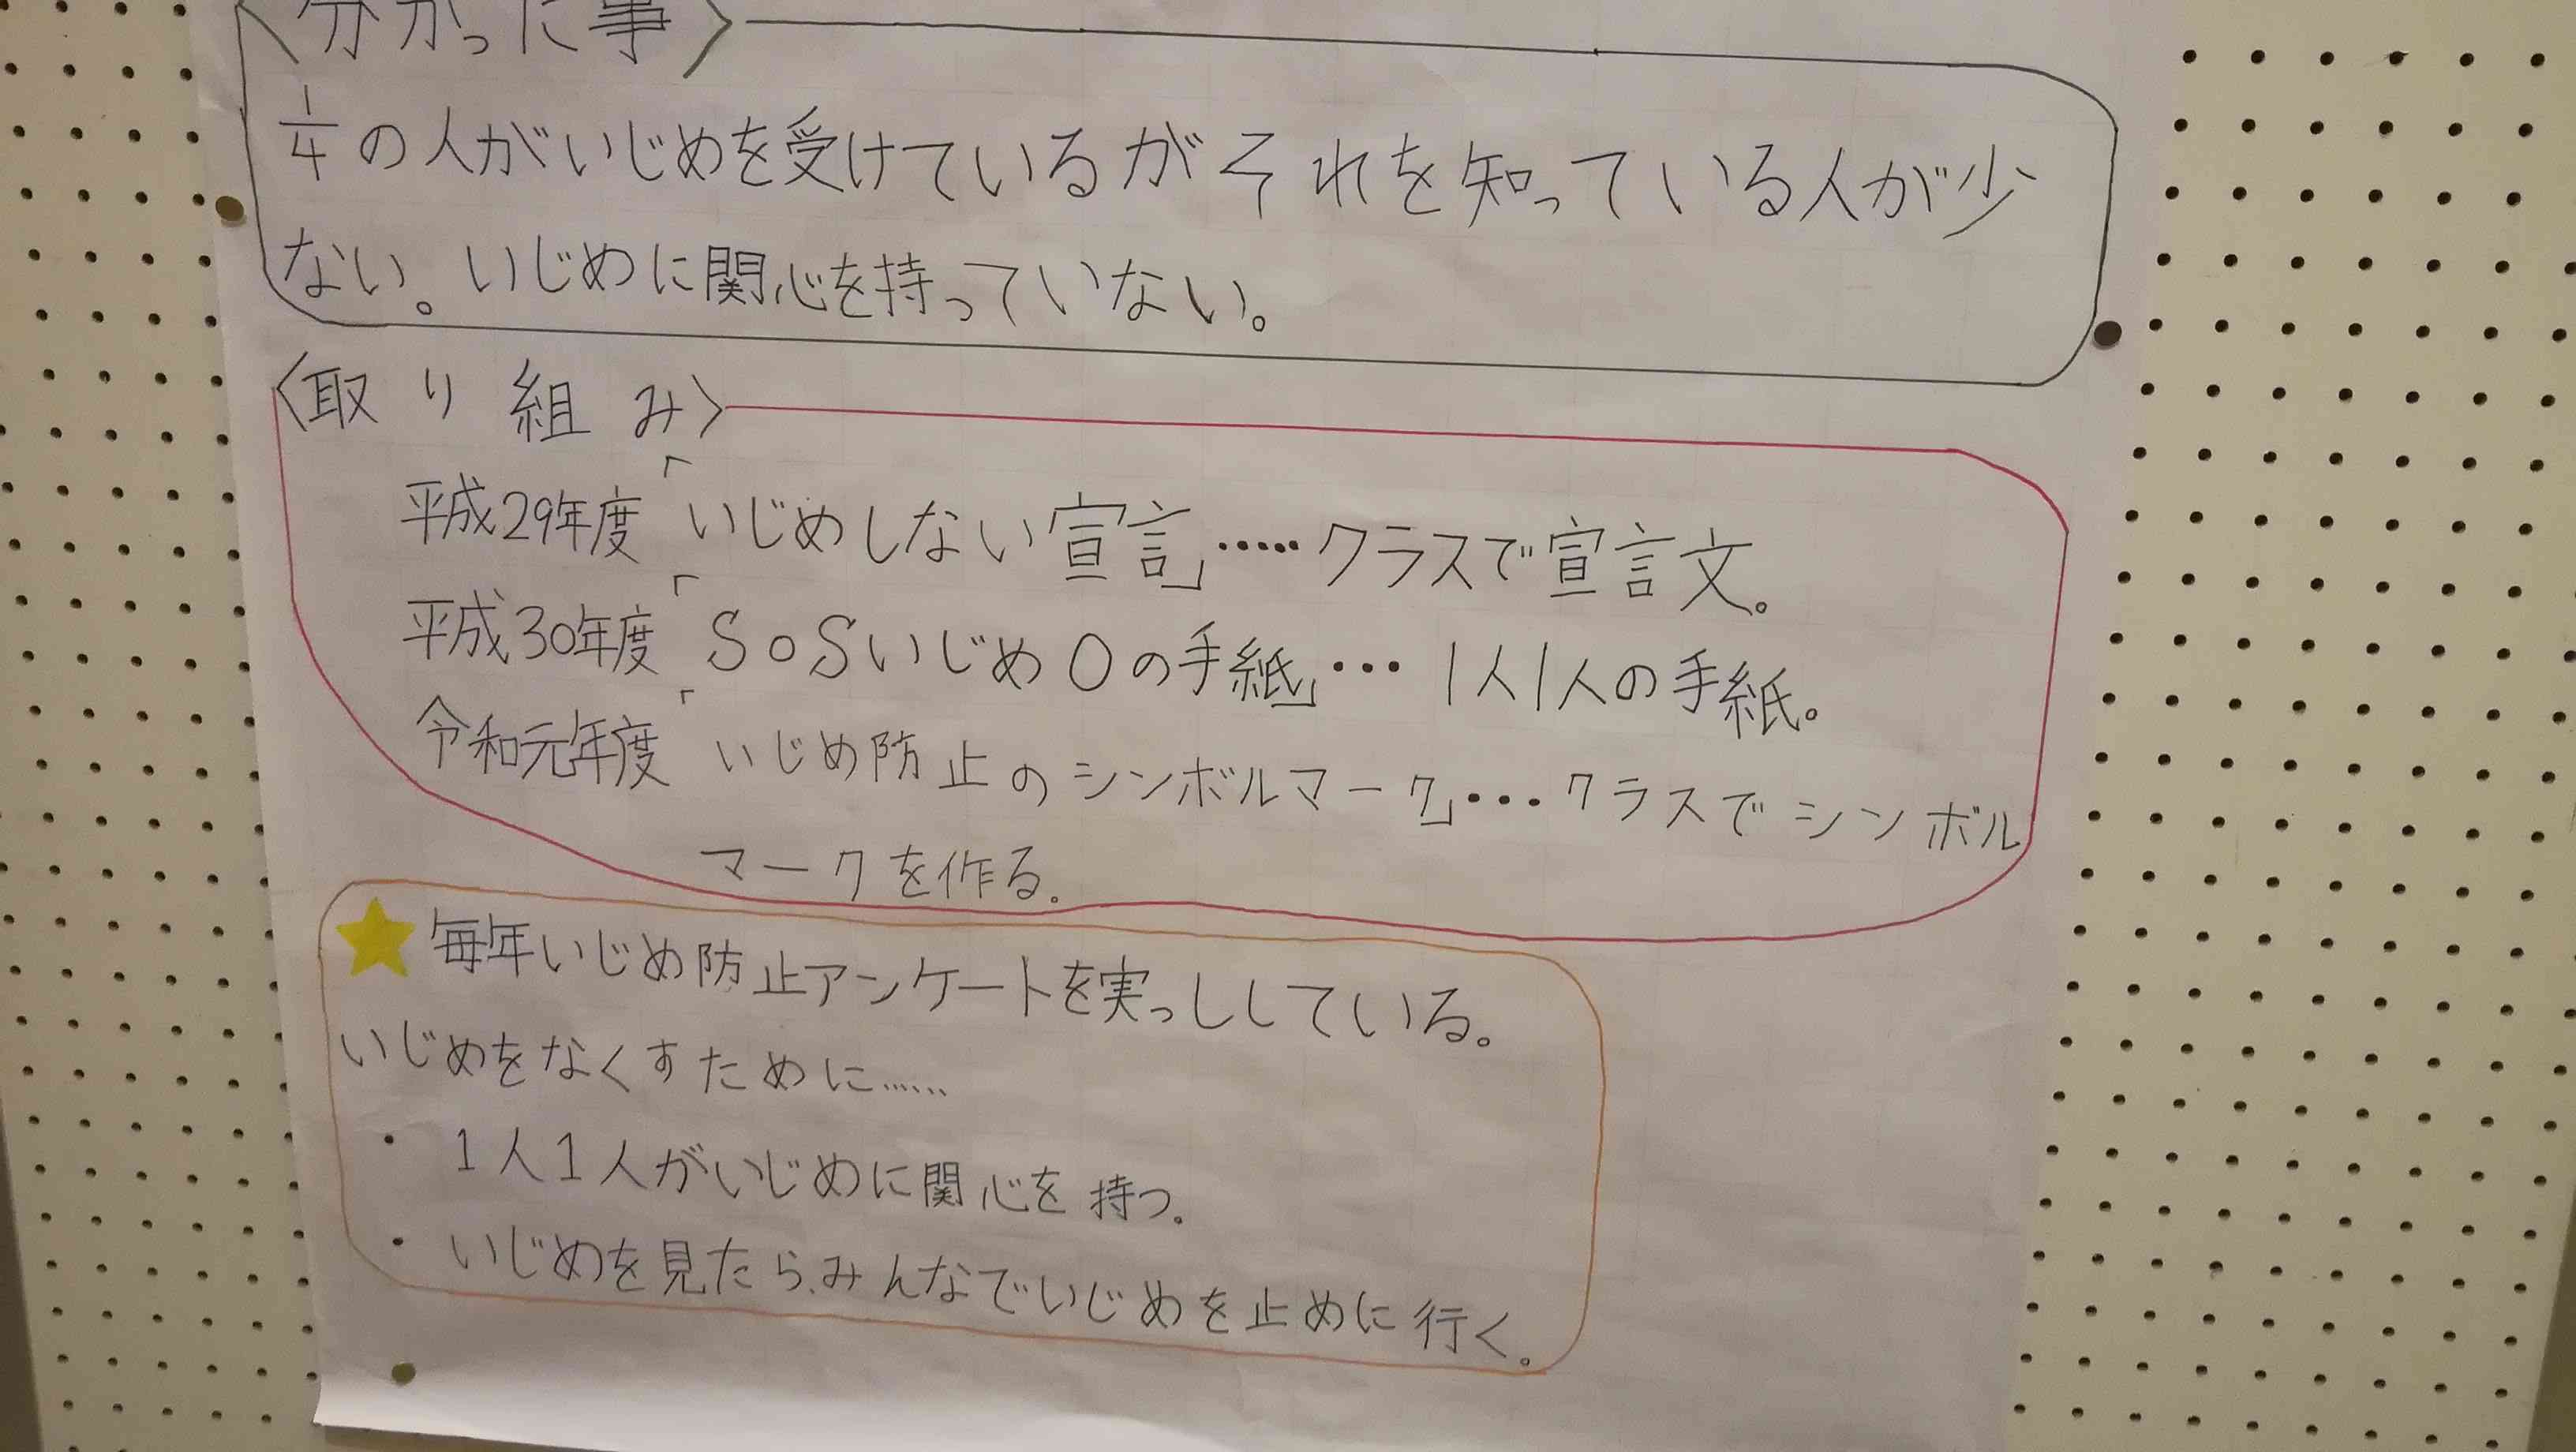 〈分かった事〉
1/4の人がいじめを受けているがそれを知っている人が少
ない。いじめに関心を持っていない。
〈取り組み〉
平成29年度「いじめしない宣言」……クラスで宣言文。
平成30年度「SOSいじめ0の手紙」…1人1人の手紙。
令和元年度「いじめ防止のシンボルマーク」…クラスでシンボル
マークを作る。
★毎年いじめ防止アンケートを実っししている。
いじめをなくすために……
・1人1人がいじめに関心を持つ。
・いじめを見たら、みんなでいじめを止めに行く。